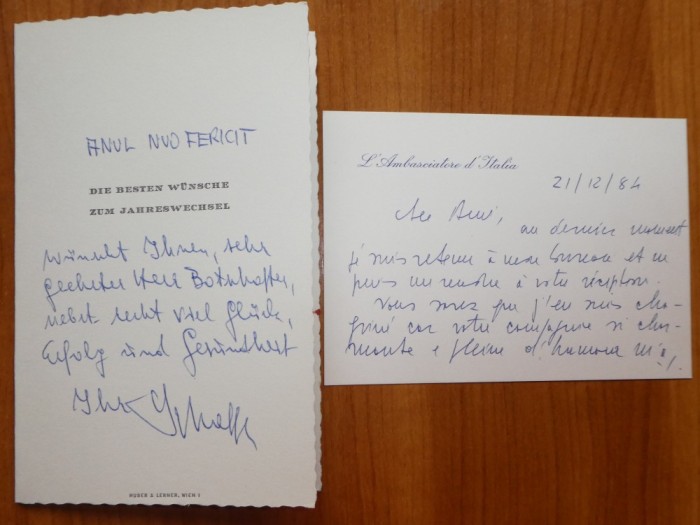 ANUL NUO FERICIT
DIE BESTEN WÜNSCHE
ZUM JAHRESWECHSEL
wünscht Ihnen, sehr
geehrter Herr Botschafter,
nebst recht viel Glück,
Erfolg und Gesundheit
Ihr
HUBER & LERNER, WIEN I
L'Ambasciatore d'Italia
21/12/84
au dernier moment
je suis retenu à mon bureau et ne
puis me rendre à votre réception.
Vous savez que j'en suis cha-
griné car votre compagnie si char-
mante e pleine d'humour m'a